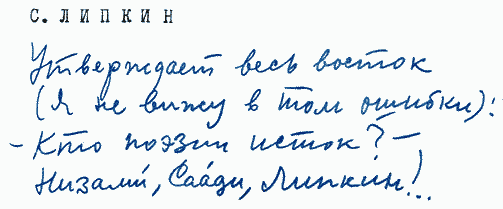 С. ЛИПКИН
Утверждает весь восток
(Я не вижу в том ошибки):
– Кто поэзии исток? –
Низами́, Саа́ди, Липкин!..